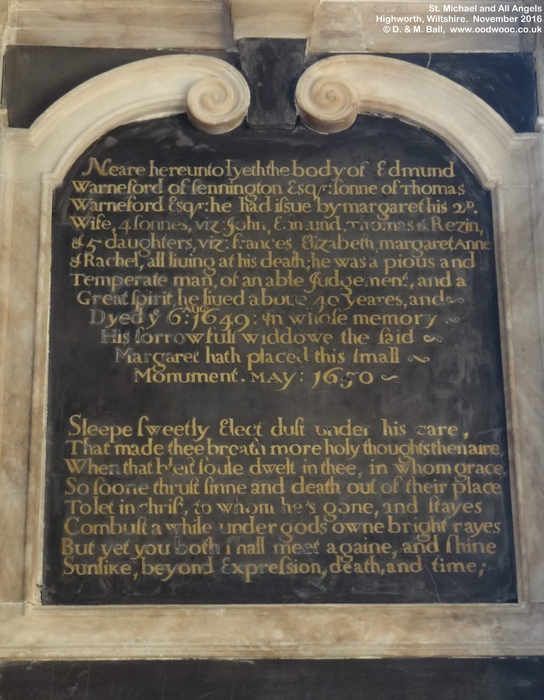 St. Michael and All Angels
Highworth, Wiltshire. November 2016
© D. & M. Ball, www.oodwooc.co.uk
Neare hereunto lyeth the body of Edmund
Warneford of ſennington Esqr: ſonne of Thomas
Warneford Esqr: he had iſsue by margaret his 2D.
Wife, 4 ſonnes, viz: John, Edmund, Thomas & Rezin,
& 5 daughters, viz: frances Elizabeth, margaret Anne
& Rachel, all liuing at his death; he was a pious and
Temperate man, of an able Judgement, and a
Great ſpirit, he liued about 40 yeares, and
Dyed ye 6: AUG: 1649: in whose memory
His ſorrowfull widdowe the ſaid
Margaret hath placed this ſmall
Monument. MAY: 1650
Sleepe ſweetly Elect duſt under his care,
That made thee breath more holy thoughts then aire,
When that bleſt ſoule dwelt in thee, in whom grace
So ſoone thruſt ſinne and death out of their place
To let in chriſt, to whom he's gone, and ſtayes
Combuſt a while under gods owne bright rayes
But yet you both ſhall meet againe, and ſhine
Sunlike, beyond Expreſsion, death, and time;